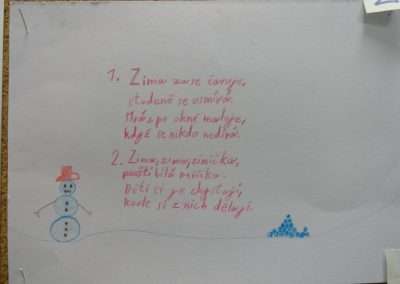 1. Zima zase čaruje,
studeně se usmívá.
Mráz po okně maluje,
když se nikdo nedívá.
2. Zima, zima, zimička,
pouští bílá míčka.
Děti si je chystají,
kode si z nich dělají.